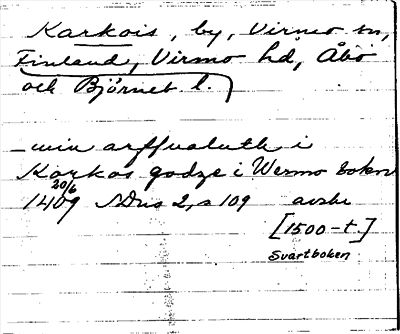 Karkois, by, Virmo sn,
Finland, Virmo hd, Åbo
och Björneb l.
– min arffualuth i
Karkos godze i Wermo sokn
20/6
1409 SDns 2, s 109 avskr
[1500-t.]
Svartboken